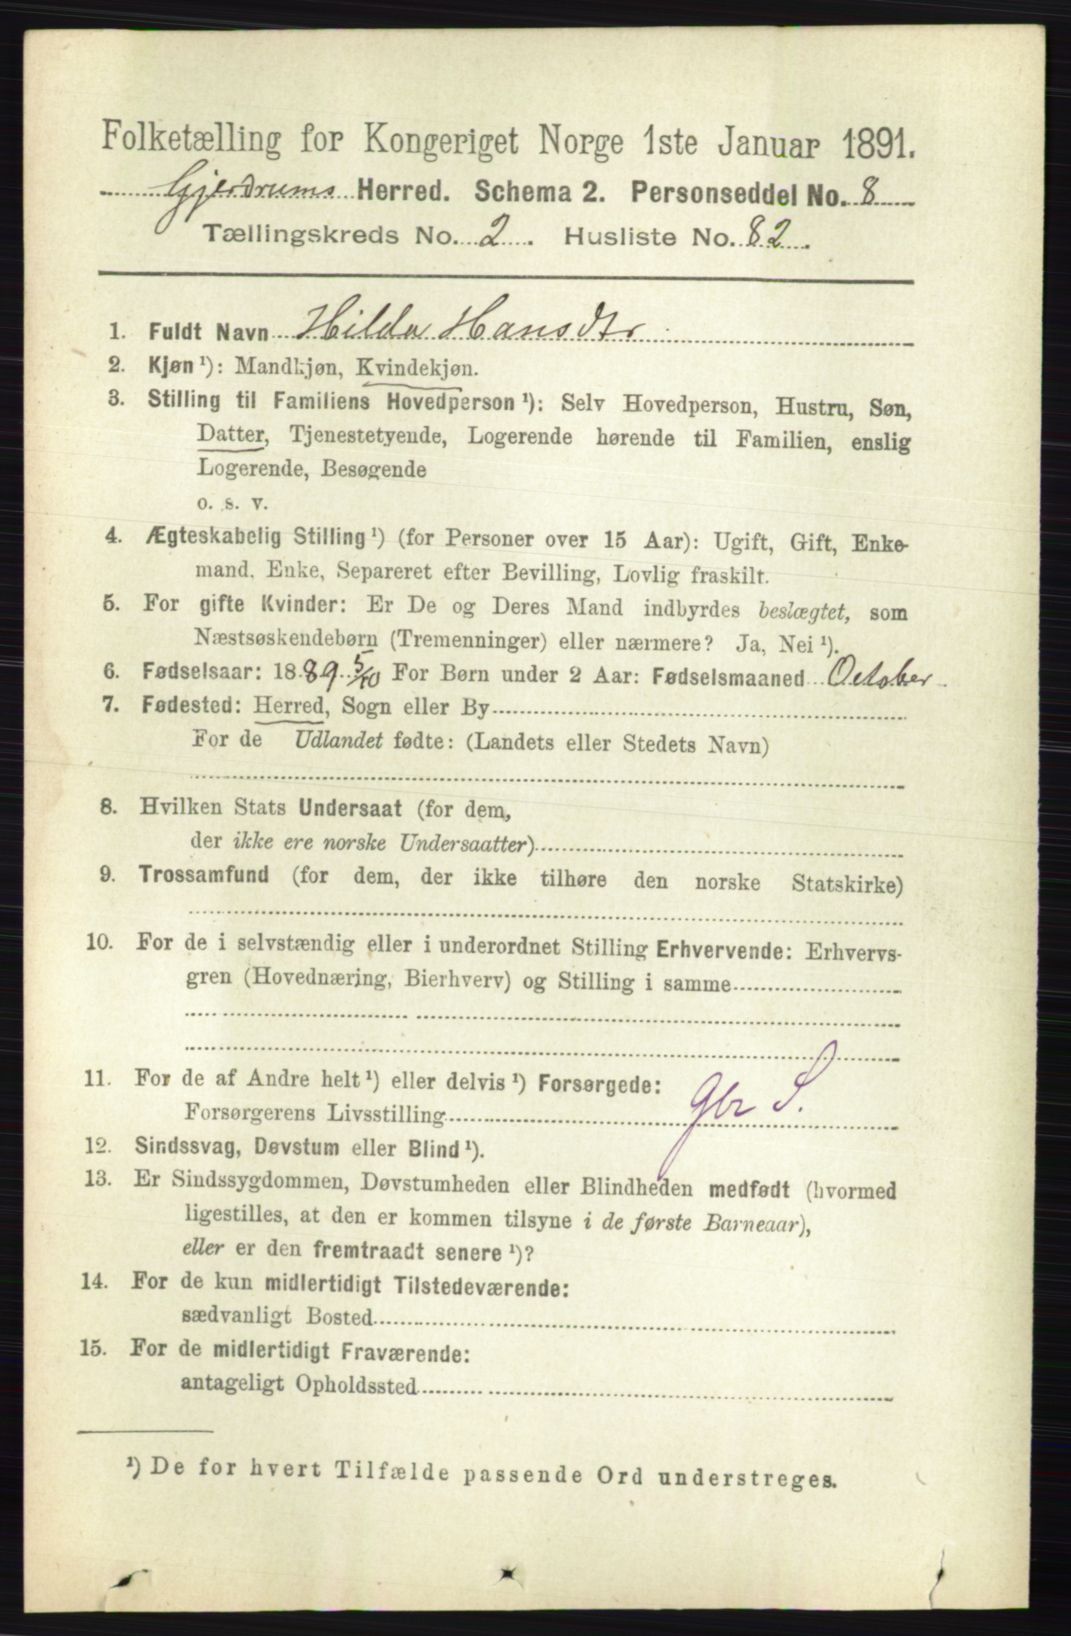 Folketælling for Kongeriget Norge 1ste Januar 1891.
Gjerdrums Herred. Schema 2. Personseddel No. 8
Tællingskreds No. 2. Husliste No. 82.
1. Fuldt Navn Hilda Hansdtr
2. Kjøn ¹): Mandkjøn, Kvindekjøn.
3. Stilling til Familiens Hovedperson ¹): Selv Hovedperson, Hustru, Søn,
Datter, Tjenestetyende, Logerende hørende til Familien, enslig
Logerende, Besøgende
o. s. v.
4. Ægteskabelig Stilling ¹) (for Personer over 15 Aar): Ugift, Gift, Enke-
mand, Enke, Separeret efter Bevilling, Lovlig fraskilt.
5. For gifte Kvinder: Er De og Deres Mand indbyrdes beslægtet, som
Næstsøskendebørn (Tremenninger) eller nærmere? Ja, Nei ¹).
6. Fødselsaar: 1889 5/10 For Børn under 2 Aar: Fødselsmaaned October
7. Fødested: Herred, Sogn eller By
For de Udlandet fødte: (Landets eller Stedets Navn)
8. Hvilken Stats Undersaat (for dem,
der ikke ere norske Undersaatter)
9. Trossamfund (for dem, der ikke tilhøre den norske Statskirke)
10. For de i selvstændig eller i underordnet Stilling Erhvervende: Erhvervs-
gren (Hovednæring, Bierhverv) og Stilling i samme
11. For de af Andre helt ¹) eller delvis ¹) Forsørgede:
Forsørgerens Livsstilling Gbr S.
12. Sindssvag, Døvstum eller Blind ¹).
13. Er Sindssygdommen, Døvstumheden eller Blindheden medfødt (hvormed
ligestilles, at den er kommen tilsyne i de første Barneaar),
eller er den fremtraadt senere ¹)?
14. For de kun midlertidigt Tilstedeværende:
sædvanligt Bosted
15. For de midlertidigt Fraværende:
antageligt Opholdssted
¹) De for hvert Tilfælde passende Ord understreges.